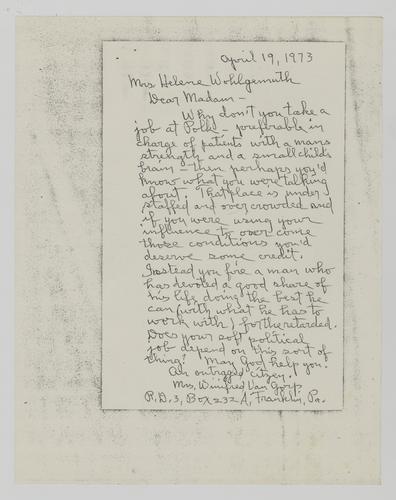 April 19, 1973
Mrs Helene Wohlgemuth
Dear Madam -
Why don't you take a
job at Polk - preferable in
charge of patients with a mans
strength and a small childs
brain - then perhaps you'd
know what you were talking
about. That place is under
staffed and overcrowded and
if you were using your
influence to over come
those conditions you'd
deserve some credit.
Instead you fire a man who
has devoted a good share of
his life doing the best he
can (with what he has to
work with) for the retarded.
Does your soft political
job depend on this sort of
thing? May God help you.
An outraged citizen.
Mrs. Winifred Van Gorp
R.D. 3, Box 232 A, Franklin, Pa.